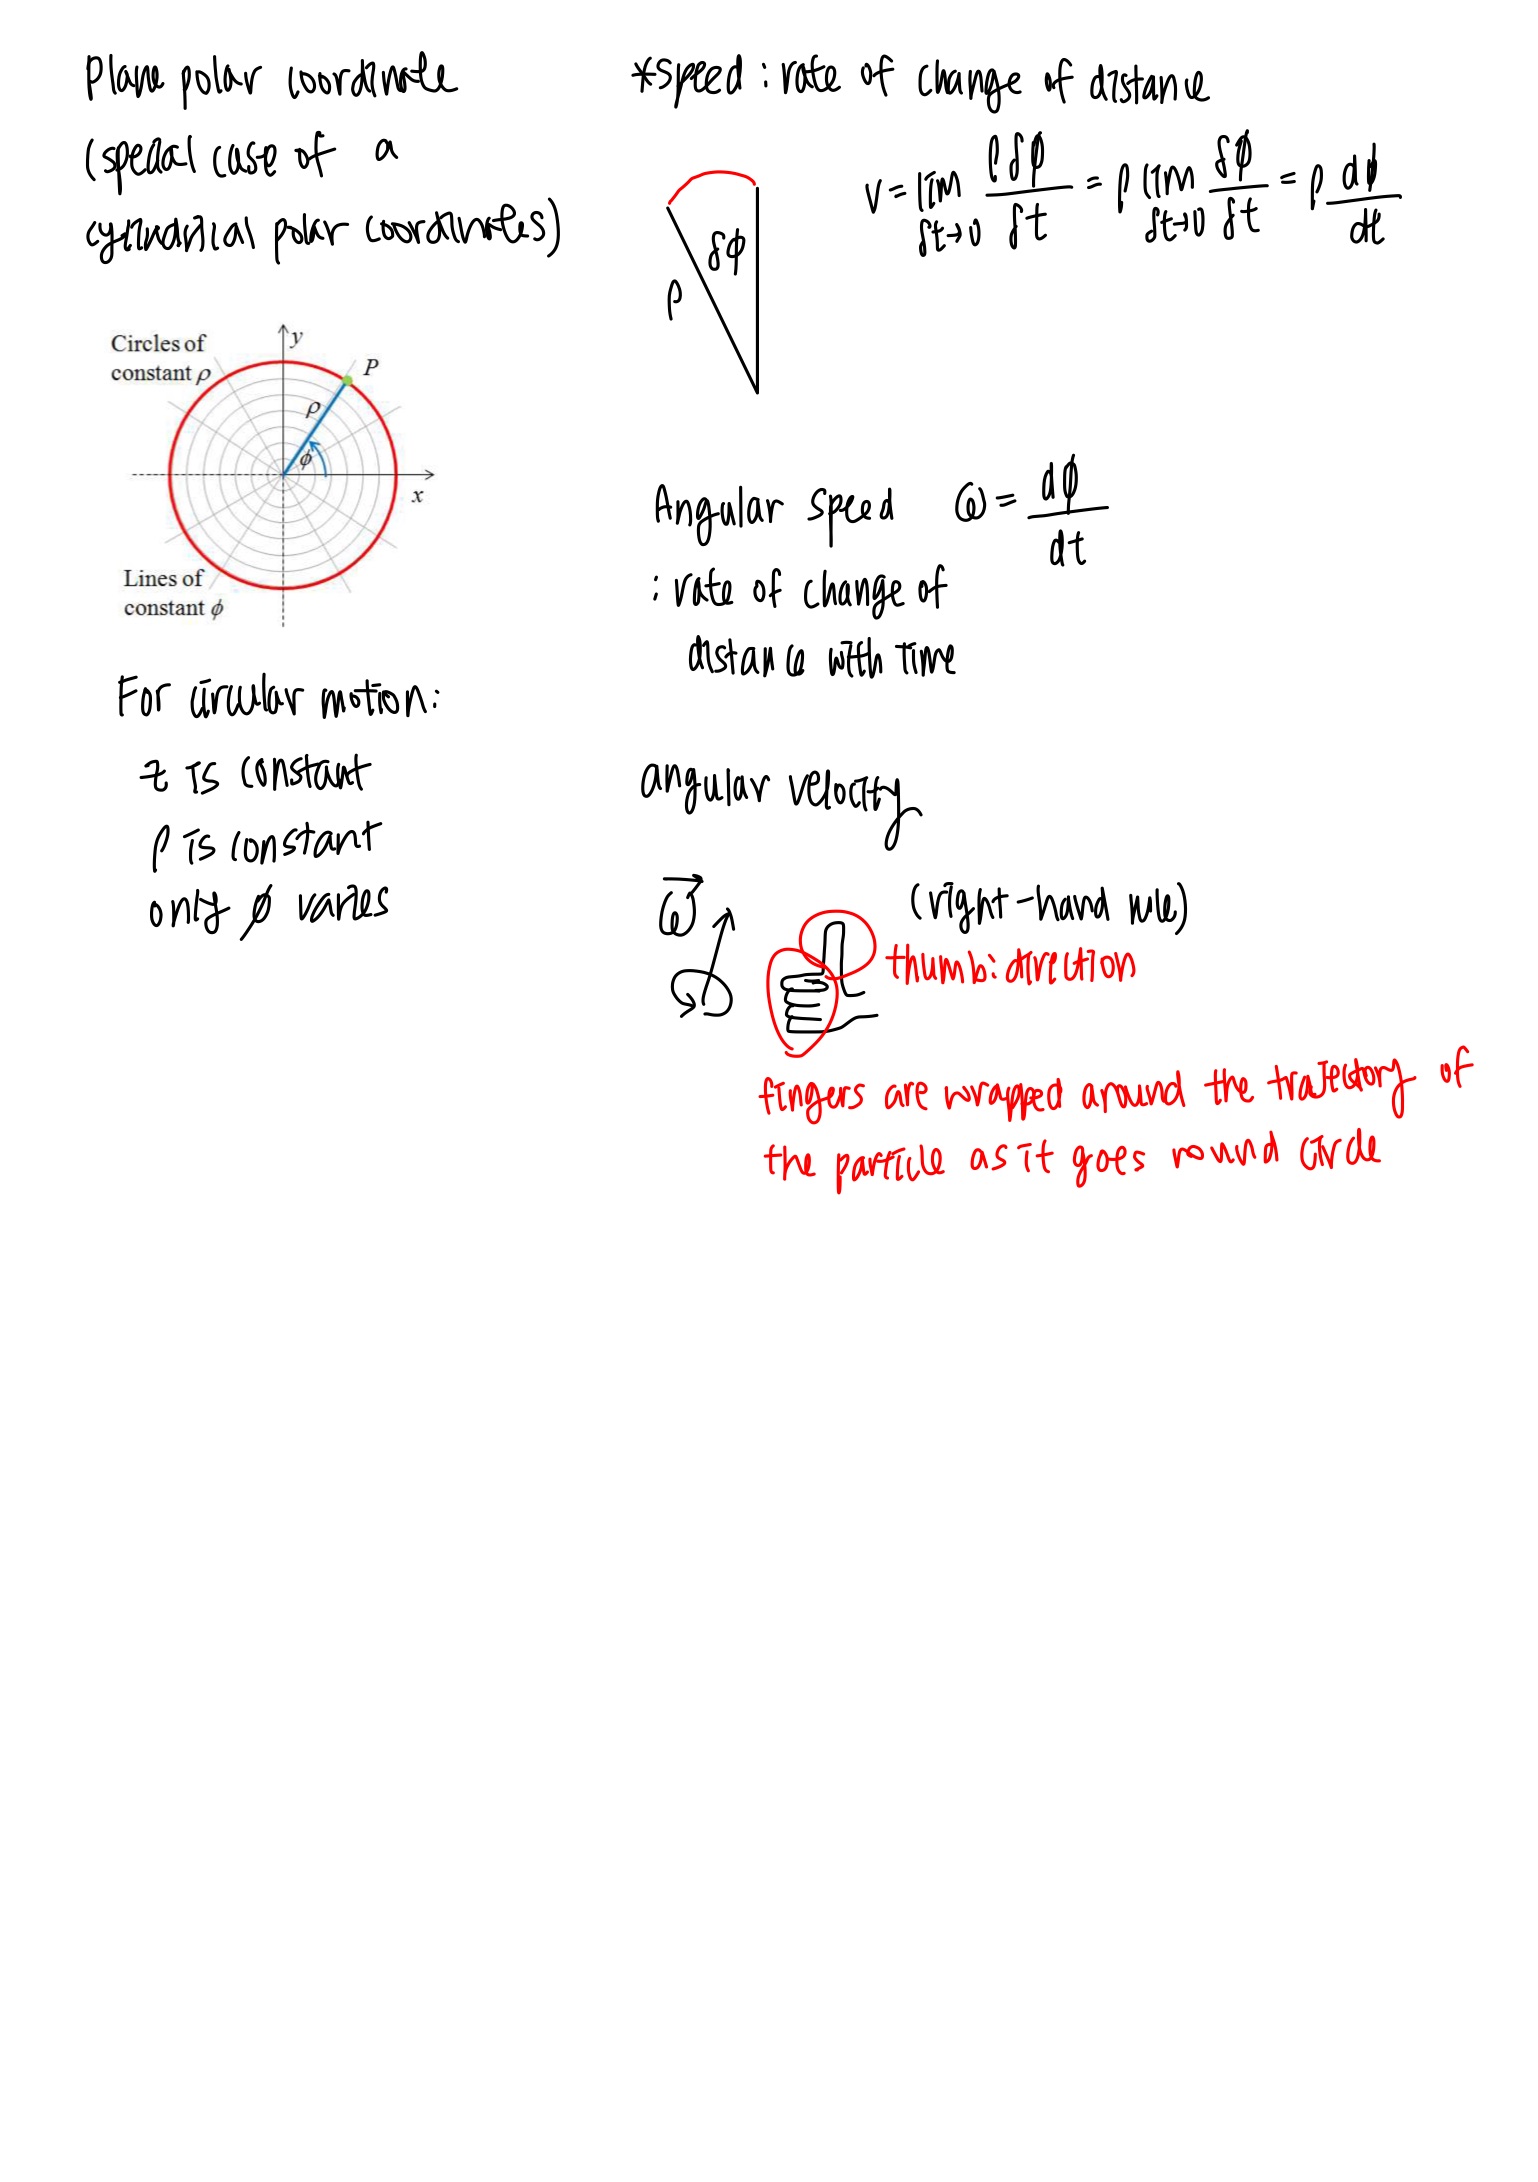 Plane polar coordinate
(special case of a
cylindrical polar coordinates)
Circles of
constant ρ
y
P
ρ
ϕ
x
Lines of
constant ϕ
For circular motion:
z is constant
ρ is constant
only ϕ varies
*speed : rate of change of distance
δϕ
ρ
v = lim δt→0 ρδϕ/δt = ρ lim δt→0 δϕ/δt = ρ dϕ/dt
Angular speed ω = dϕ/dt
: rate of change of
distance with time
angular velocity
ω⃗
(right-hand rule)
thumb: direction
fingers are wrapped around the trajectory of
the particle as it goes round circle